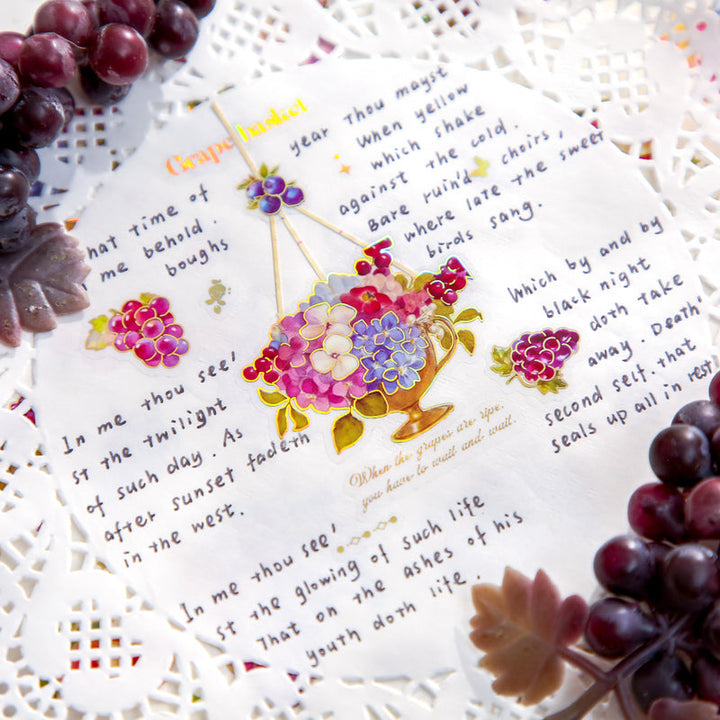 Grape basket
hat time of
me behold.
boughs
year thou mayst
When yellow
which shake
against the cold.
Bare ruin'd choirs,
where late the sweet
birds sang.
In me thou see'
st the twilight
of such day. As
after sunset fadeth
in the west.
Which by and by
black night
doth take
away. Death'
second self. that
seals up all in rest
When the grapes are ripe,
you have to wait and wait.
In me thou see'
st the glowing of such life
That on the ashes of his
youth doth life.